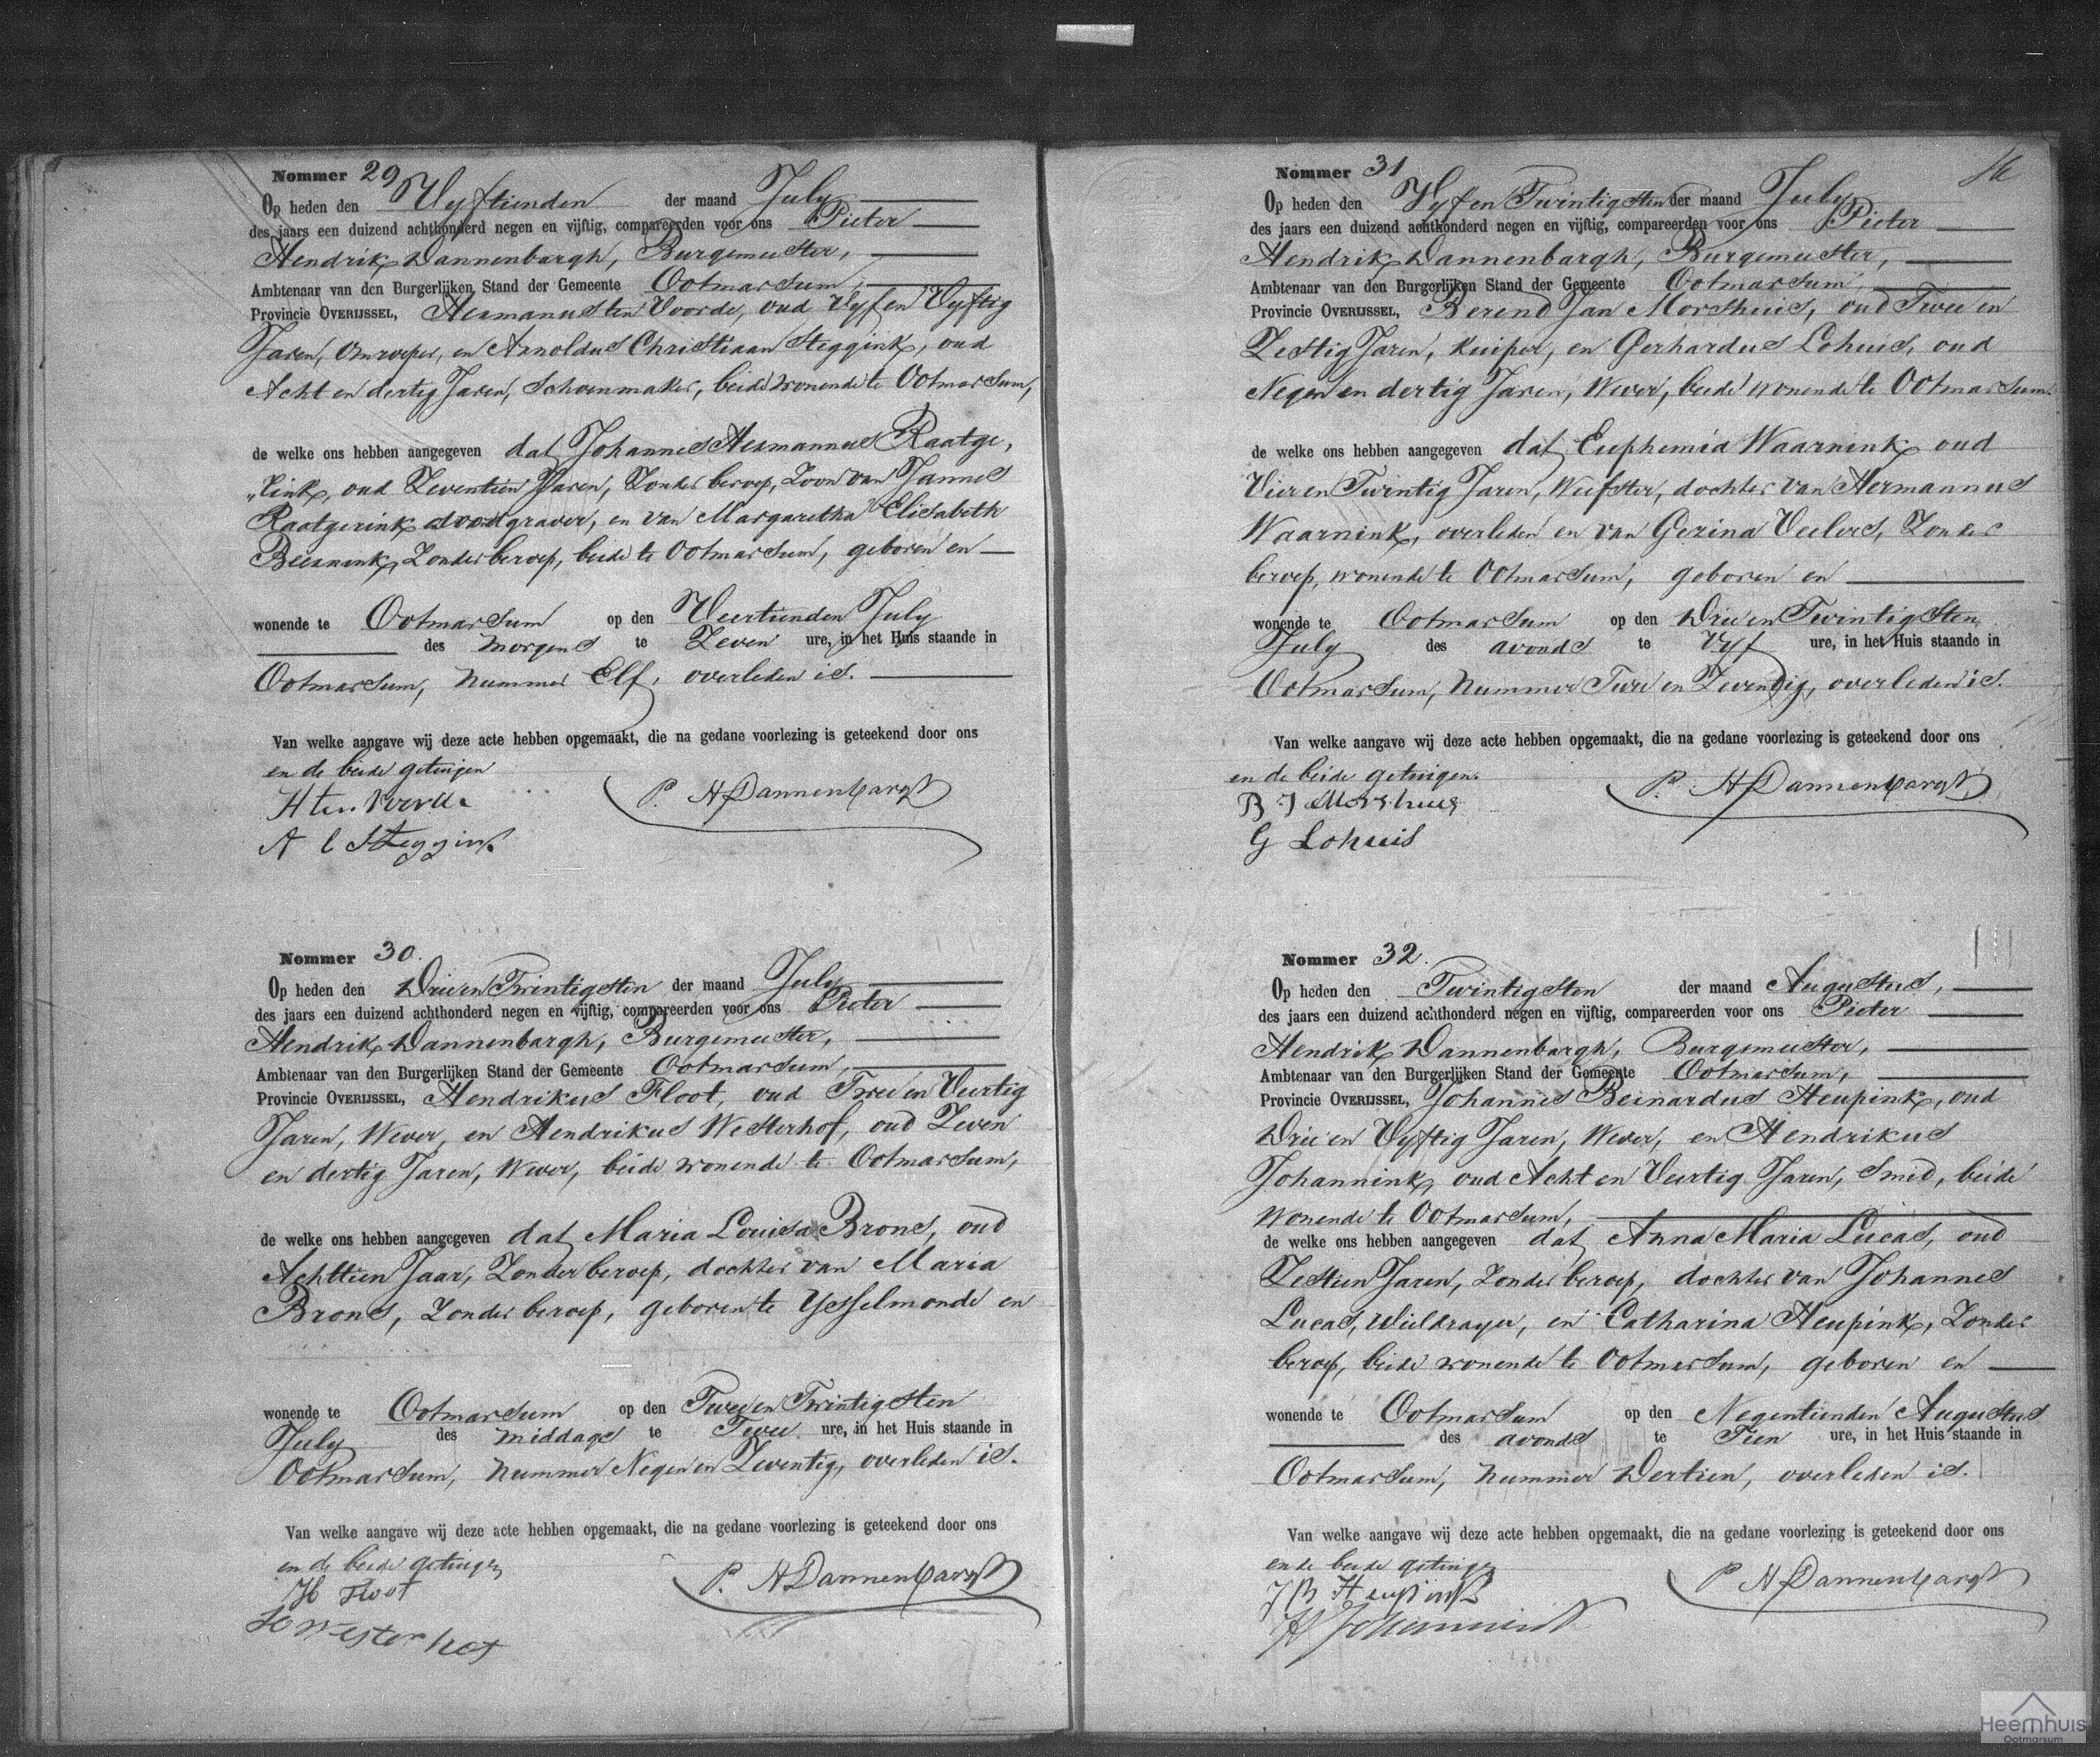 Nommer 29
Op heden den Vyftienden der maand July
des jaars een duizend achthonderd negen en vijftig, compareerden voor ons Pieter
Hendrik Dannenbargh, Burgemeester,
Ambtenaar van den Burgerlijken Stand der Gemeente Ootmarsum,
Provincie OVERIJSSEL, Hermanus ten Voorde, oud Vyf en Vyftig
Jaren, Omroeper, en Arnoldus Christiaan Steggink, oud
Acht en dertig Jaren, Schoenmaker, beide wonende te Ootmarsum,
de welke ons hebben aangegeven dat Johannes Hermannus Raatge,
„rink, oud Zeventien Jaren, Zonder beroep, Zoon van Jannes
Raatgerink doodgraver, en van Margaretha Elisabeth
Beernink, Zonder beroep, beide te Ootmarsum, geboren en
wonende te Ootmarsum op den Veertienden July
des morgens te Zeven ure, in het Huis staande in
Ootmarsum, nummer Elf, overleden is.
Van welke aangave wij deze acte hebben opgemaakt, die na gedane voorlezing is geteekend door ons
en de beide getuigen
H ten Voorde
P. H Dannenbargh
A C Steggink
Nommer 30.
Op heden den Drie en Twintigsten der maand July
des jaars een duizend achthonderd negen en vijftig, compareerden voor ons Pieter
Hendrik Dannenbargh, Burgemeester,
Ambtenaar van den Burgerlijken Stand der Gemeente Ootmarsum,
Provincie OVERIJSSEL, Hendrikus Floot, oud Twee en Veertig
Jaren, Wever, en Hendrikus Westerhof, oud Zeven
en dertig Jaren, Wever, beide wonende te Ootmarsum,
de welke ons hebben aangegeven dat Maria Louisa Brons, oud
Achttien Jaar, Zonder beroep, dochter van Maria
Brons, Zonder beroep, geboren te Ysselmonde en
wonende te Ootmarsum op den Twee en Twintigsten
July des middags te Twee ure, in het Huis staande in
Ootmarsum, nummer Negen en Zeventig, overleden is.
Van welke aangave wij deze acte hebben opgemaakt, die na gedane voorlezing is geteekend door ons
en de beide getuigen
P. H Dannenbargh
H Floot
H Westerhof
16
Nommer 31
Op heden den Vyf en Twintigsten der maand July
des jaars een duizend achthonderd negen en vijftig, compareerden voor ons Pieter
Hendrik Dannenbargh, Burgemeester,
Ambtenaar van den Burgerlijken Stand der Gemeente Ootmarsum,
Provincie OVERIJSSEL, Berend Jan Morshuis, oud Twee en
Zestig Jaren, Kuiper, en Gerhardus Lohuis, oud
Negen en dertig Jaren, Wever, beide wonende te Ootmarsum.
de welke ons hebben aangegeven dat Euphemia Waarnink, oud
Vier en Twintig Jaren, Weefster, dochter van Hermannus
Waarnink, overleden en van Gezina Veelers, Zonder
beroep, wonende te Ootmarsum, geboren en
wonende te Ootmarsum op den Drie en Twintigsten
July des avonds te Vyf ure, in het Huis staande in
Ootmarsum, nummer Twee en Zevendig, overleden is.
Van welke aangave wij deze acte hebben opgemaakt, die na gedane voorlezing is geteekend door ons
en de beide getuigen.
P. H Dannenbargh
B J Morshuis
G Lohuis
Nommer 32.
Op heden den Twintigsten der maand Augustus,
des jaars een duizend achthonderd negen en vijftig, compareerden voor ons Pieter
Hendrik Dannenbargh, Burgemeester,
Ambtenaar van den Burgerlijken Stand der Gemeente Ootmarsum,
Provincie OVERIJSSEL, Johannes Bernardus Heupink, oud
Drie en Vyftig Jaren, Wever, en Hendrikus
Johannink, oud Acht en Veertig Jaren, Smid, beide
wonende te Ootmarsum,
de welke ons hebben aangegeven dat Anna Maria Lucas, oud
Zestien Jaren, Zonder beroep, dochter van Johannes
Lucas, Wieldrayer, en Catharina Heupink, Zonder
beroep, beide wonende te Ootmarsum, geboren en
wonende te Ootmarsum op den Negentienden Augustus
des avonds te Tien ure, in het Huis staande in
Ootmarsum, nummer Dertien, overleden is.
Van welke aangave wij deze acte hebben opgemaakt, die na gedane voorlezing is geteekend door ons
en de beide getuigen
P H Dannenbargh
J B Heupink
H Johannink
Heemhuis
Ootmarsum